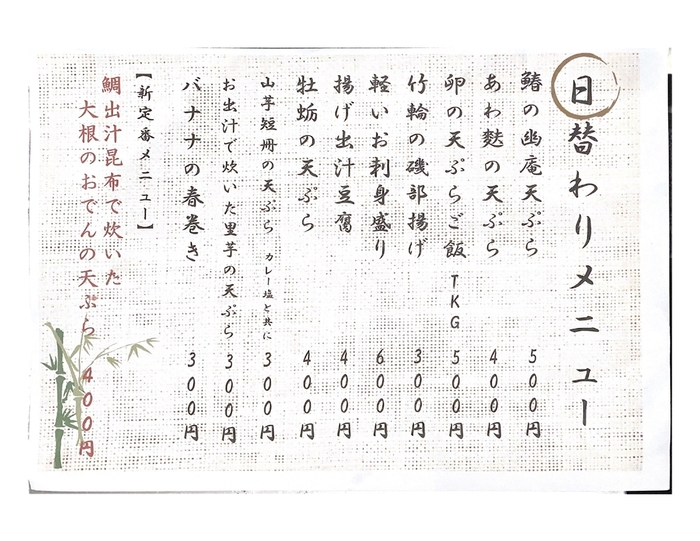 日替わりメニュー
鰆の幽庵天ぷら 500円
あわ麩の天ぷら 400円
卵の天ぷらご飯 TKG 500円
竹輪の磯部揚げ 300円
軽いお刺身盛り 600円
揚げ出汁豆腐 400円
牡蛎の天ぷら 400円
山芋短冊の天ぷら カレー塩と共に 300円
お出汁で炊いた里芋の天ぷら 300円
バナナの春巻き 300円
【新定番メニュー】
鯛出汁昆布で炊いた
大根のおでんの天ぷら 400円